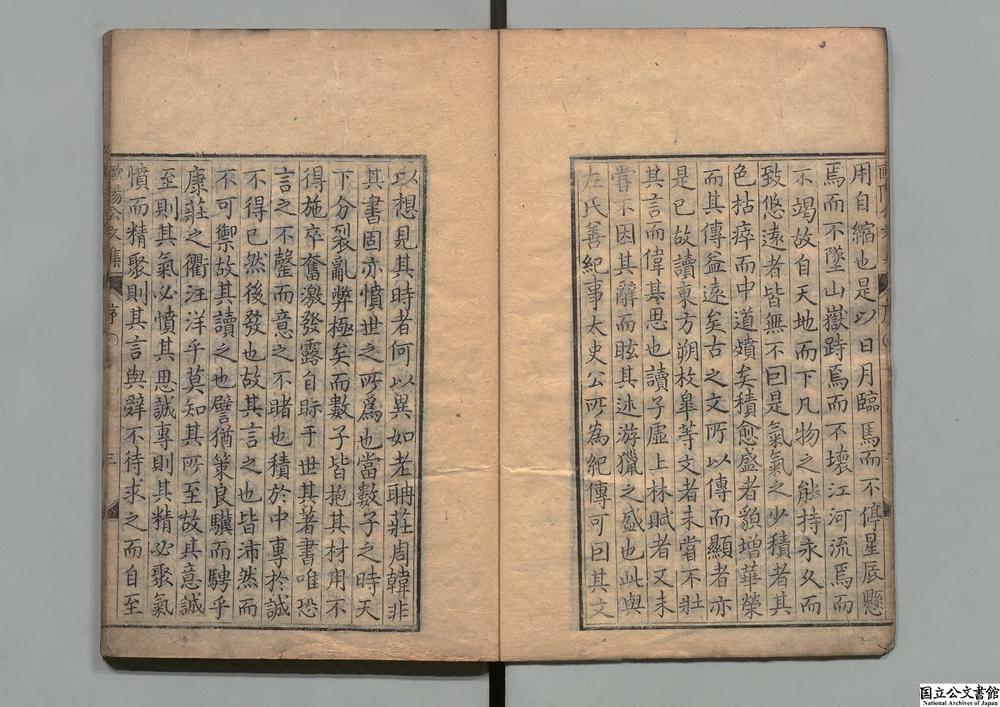 用自縮也是以日月臨焉而不停星辰懸
焉而不墜山嶽跱焉而不壞江河流焉而
不竭故自天地而下凡物之能持永久而
致悠遠者皆無不曰是氣氣之少積者其
色枯瘁而中道殰矣積愈盛者貌增華榮
而其傳益遠矣古之文所以傳而顯者亦
是已故讀東方朔枚皐等文者未嘗不壯
其言而偉其思也讀子虛上林賦者又未
嘗不因其辭而眩其述游獵之盛也此與
左氏善紀事太史公所為紀傳可曰其文
以想見其時者何以異如老聃莊周韓非
其書固亦憤世之所爲也當數子之時天
下分裂亂弊極矣而數子皆抱其材用不
得施卒奮激發露自眎于世其著書唯恐
言之不罄而意之不睹也積於中專於誠
不得已然後發也故其言之也皆沛然而
不可禦故其讀之也譬猶策良驥而騁乎
康莊之衢汪洋乎莫知其所至故其意誠
至則其氣必憤其思誠專則其精必聚氣
憤而精聚則其言與辭不待求之而自至
歐陽公文集
序
三
国立公文書館
National Archives of Japan